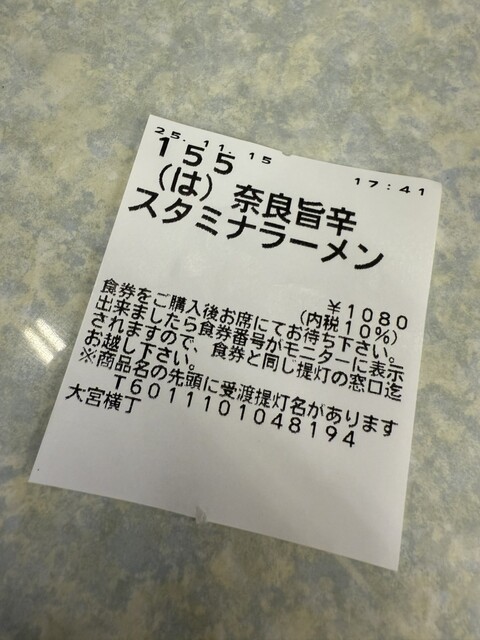 25.11.15 17:41
155
(は)奈良旨辛
スタミナラーメン
¥1080
(内税10%)
食券をご購入後お席にてお待ち下さい。
出来ましたら食券番号がモニターに表示
されますので、食券と同じ提灯の窓口迄
お越し下さい。
※商品名の先頭に受渡提灯名があります
T6011101048194
大宮横丁